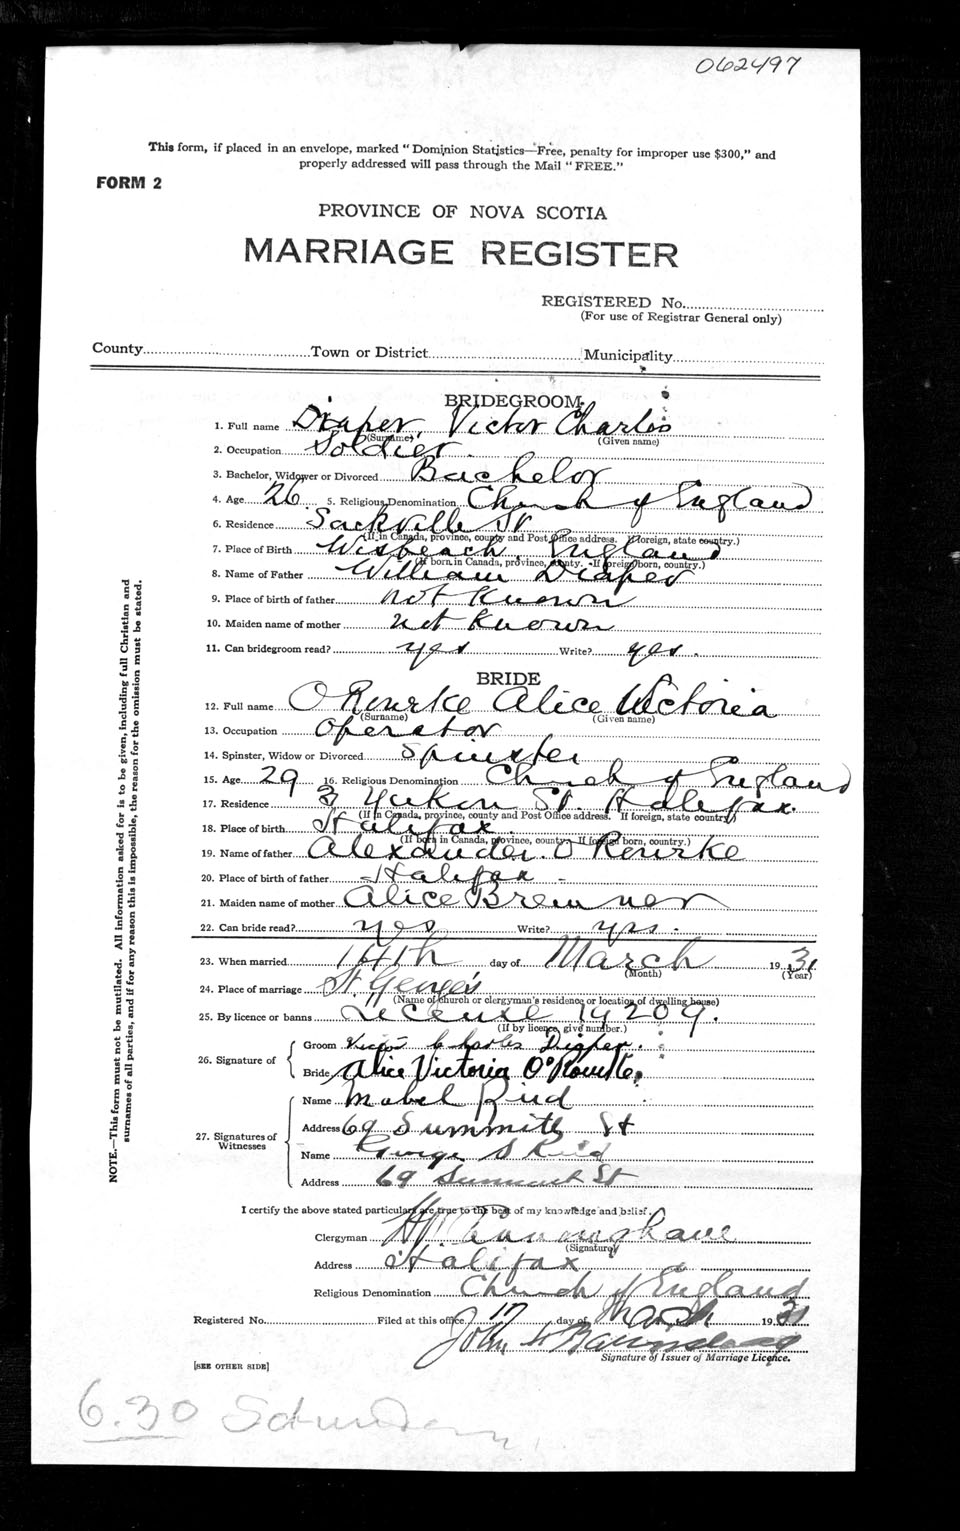 062497
This form, if placed in an envelope, marked "Dominion Statistics—Free, penalty for improper use $300," and
properly addressed will pass through the Mail "FREE."
FORM 2
PROVINCE OF NOVA SCOTIA
MARRIAGE REGISTER
REGISTERED No.
(For use of Registrar General only)
County Town or District Municipality
BRIDEGROOM
1. Full name Draper, Victor Charles
(Surname) (Given name)
2. Occupation Soldier
3. Bachelor, Widower or Divorced Bachelor
4. Age 26 5. Religious Denomination Church of England
6. Residence Sackville St
(If in Canada, province, county and Post Office address. If foreign, state country.)
7. Place of Birth Wisbeach, England
(If born in Canada, province, county. If foreign born, country.)
8. Name of Father William Draper
9. Place of birth of father not Known
10. Maiden name of mother not Known
11. Can bridegroom read? yes Write? yes.
BRIDE
12. Full name O Rourke Alice Victoria
(Surname) (Given name)
13. Occupation Operator
14. Spinster, Widow or Divorced Spinster
15. Age 29 16. Religious Denomination Church of England
17. Residence 3 Yukon St. Halifax.
(If in Canada, province, county and Post Office address. If foreign, state country)
18. Place of birth Halifax
(If born in Canada, province, county. If foreign born, country.)
19. Name of father Alexander O Rourke
20. Place of birth of father Halifax
21. Maiden name of mother Alice Bremner
22. Can bride read? yes Write? yes.
23. When married 14th day of March 1931
(Month) (Year)
24. Place of marriage St. George's
(Name of church or clergyman's residence or location of dwelling house)
25. By licence or banns License 19209.
(If by licence, give number.)
26. Signature of
Groom Victor Charles Draper.
Bride Alice Victoria O'Rourke.
27. Signatures of Witnesses
Name Mabel Reid
Address 69 Summitt St
Name George S Reid
Address 69 Summit St
I certify the above stated particulars are true to the best of my knowledge and belief.
Clergyman
(Signature)
Address Halifax
Religious Denomination Church of England
Registered No. Filed at this office 17 day of March 1931
John
Signature of Issuer of Marriage Licence.
[SEE OTHER SIDE]
6.30
NOTE.—This form must not be mutilated. All information asked for is to be given, including full Christian and
surnames of all parties, and if for any reason this is impossible, the reason for the omission must be stated.